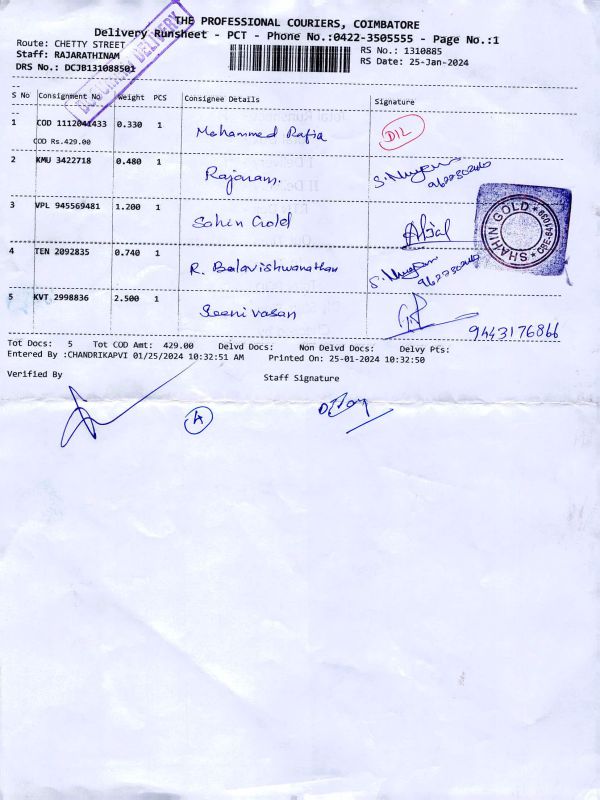 THE PROFESSIONAL COURIERS, COIMBATORE
Delivery Runsheet - PCT - Phone No.:0422-3505555 - Page No.:1
Route: CHETTY STREET
RS No.: 1310885
Staff: RAJARATHINAM
RS Date: 25-Jan-2024
DRS No.: DCJB131088501
DELIVERY
S No Consignment No Weight PCS Consignee Details Signature
1 COD 1112041433 0.330 1 Mohammed Rafia D/L
COD Rs.429.00
2 KMU 3422718 0.480 1 Rajaram.
3 VPL 945569481 1.200 1 Sahin Gold Afjal
SHAHIN GOLD
4 TEN 2092835 0.740 1 R. Balavishwanathan
5 KVT 2998836 2.500 1 Seenivasan 9443176866
Tot Docs: 5 Tot COD Amt: 429.00 Delvd Docs: Non Delvd Docs: Delvy Pts:
Entered By :CHANDRIKAPVI 01/25/2024 10:32:51 AM Printed On: 25-01-2024 10:32:50
Verified By Staff Signature
A